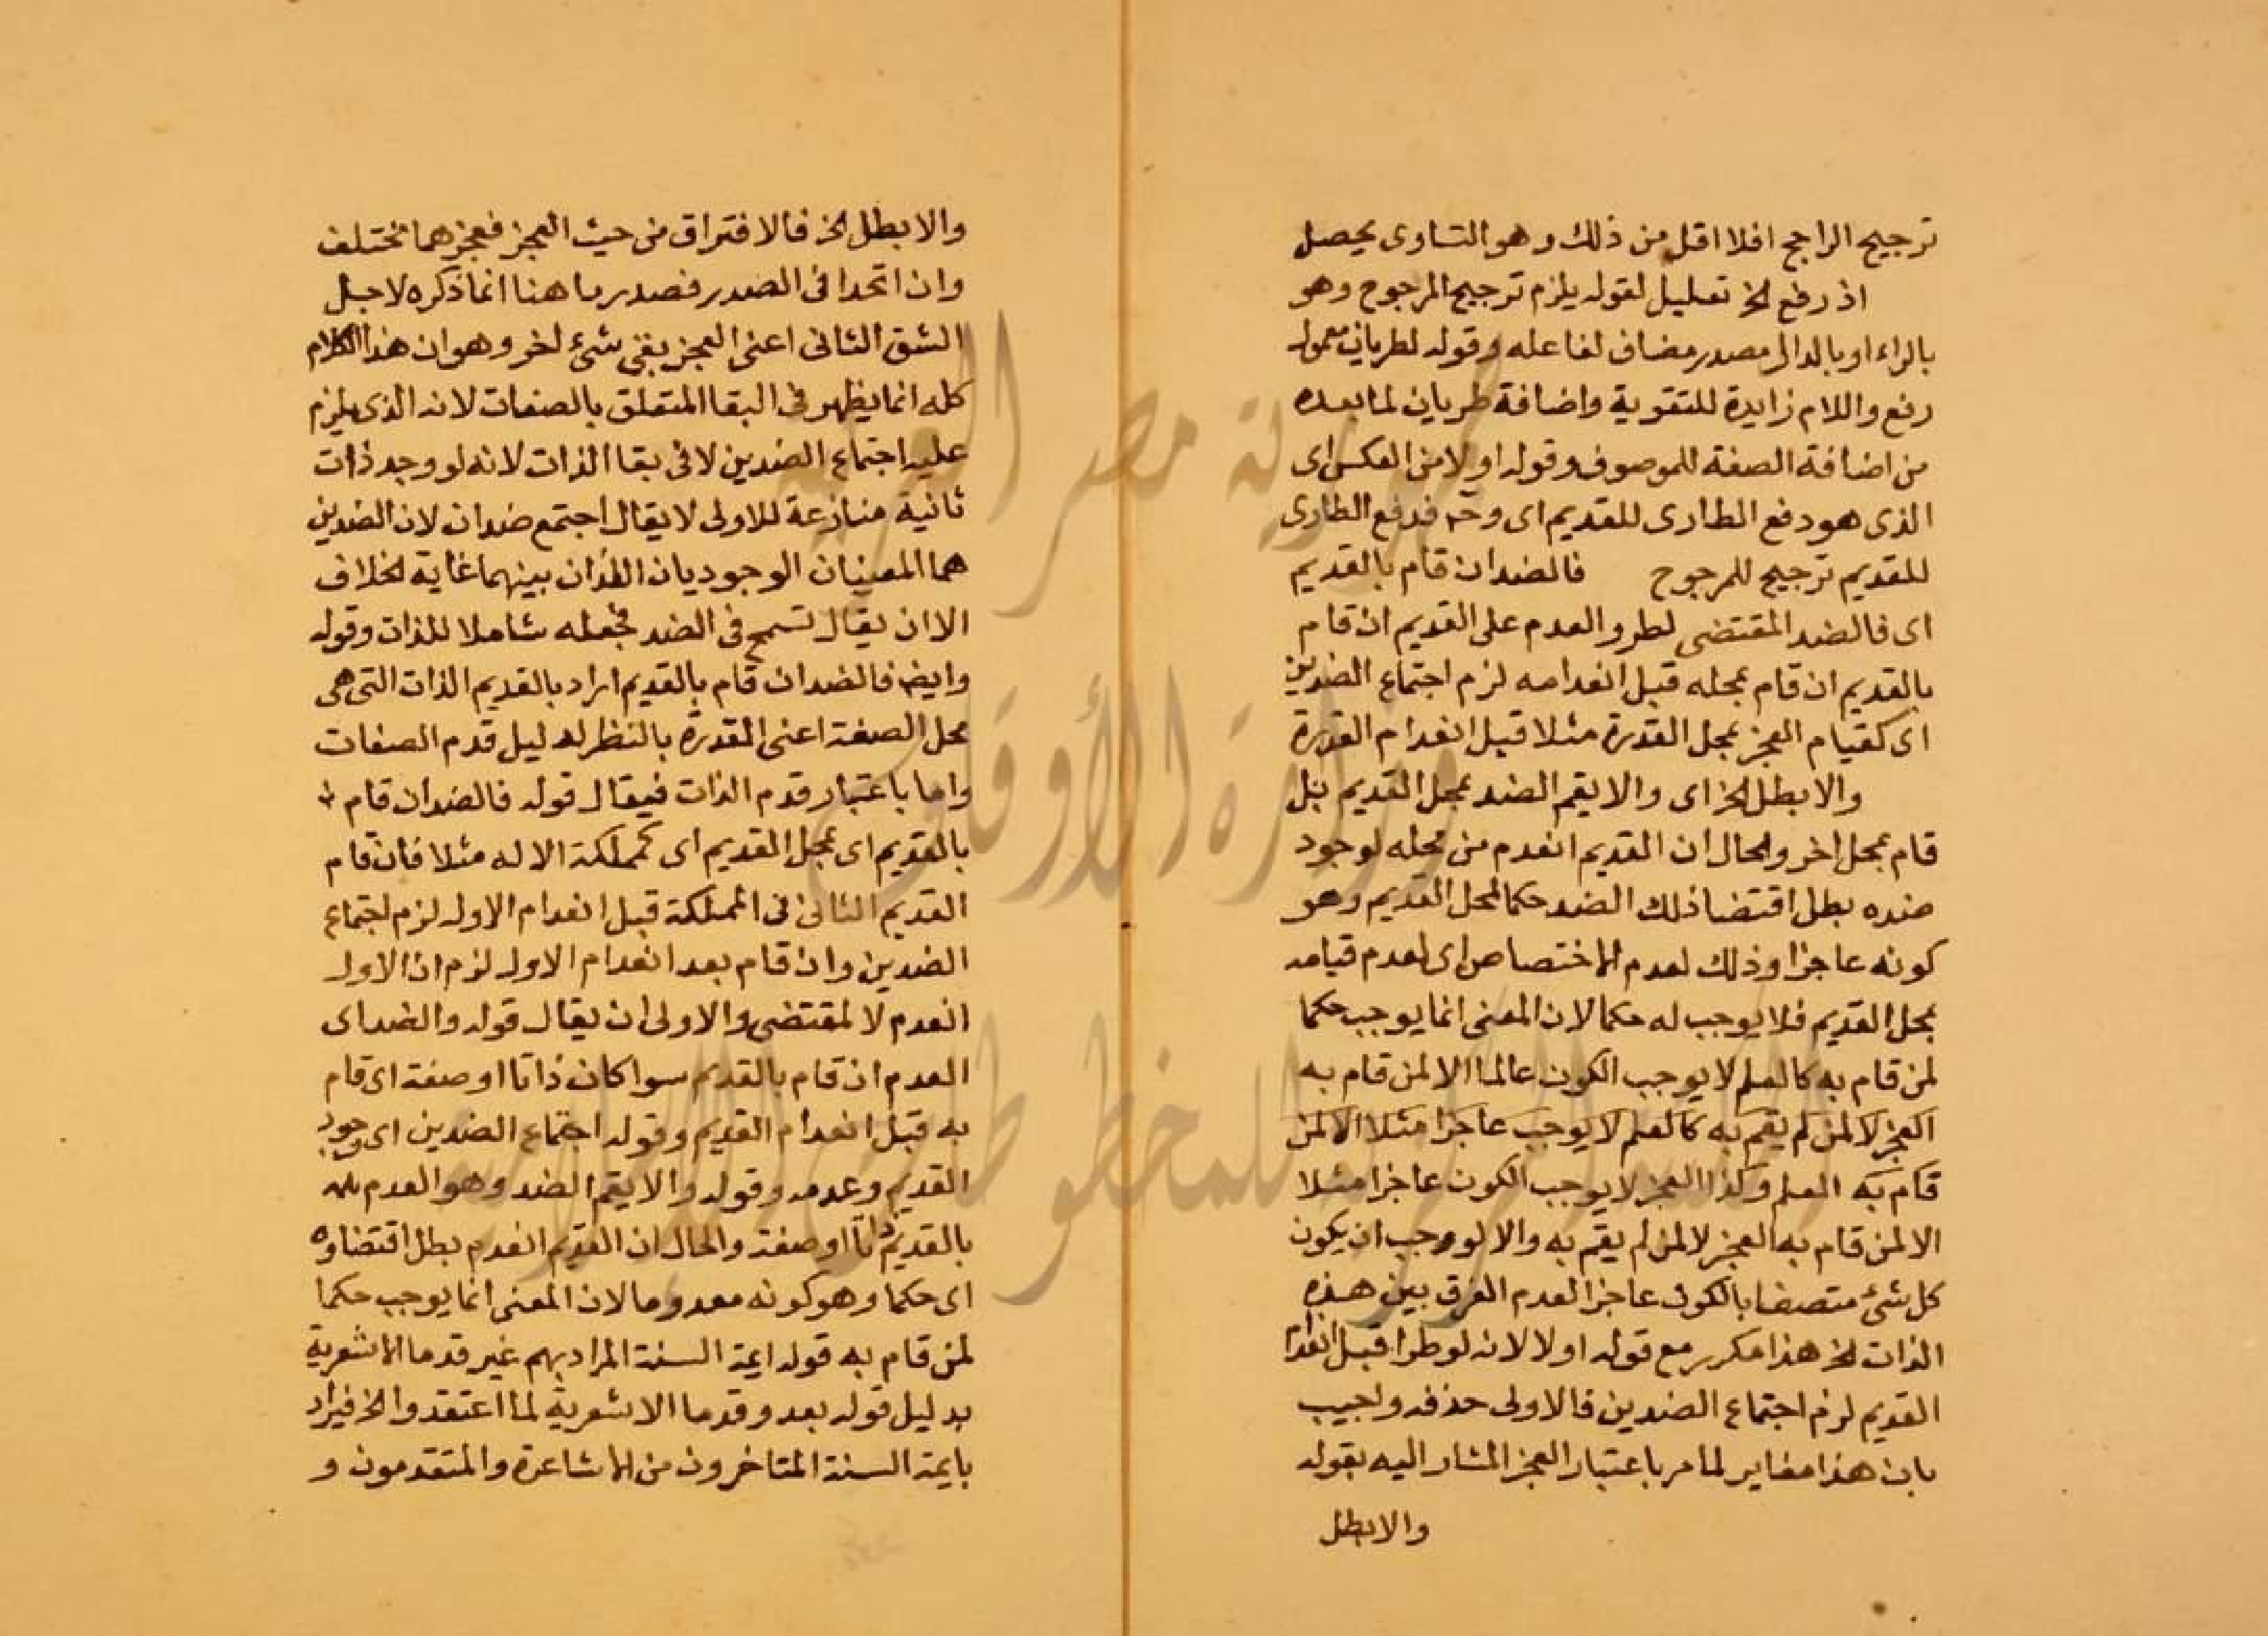 ترجيح الراجح افلا اقل من ذلك وهو التساوى يحصل
اذ رفع الخ تعليل لقوله يلزم ترجيح المرجوح وهو
بالراء او بالدال مصدر مضاف لفاعله وقوله لطريان معمول
رفع واللام زايدة للتقوية واضافة طريان لما بعده
من اضافة الصفة للموصوف وقوله اولا من العكس اى
الذى هو دفع الطارى للقديم اى وح فدفع الطارى
للقديم ترجيح للمرجوح فالضد ان قام بالقديم
اى فالضد المقتضى لطرو العدم على القديم ان قام
بالقديم ان قام بمحله قبل انعدامه لزم اجتماع الضدين
اى كقيام العجز بمحل القدرة مثلا قبل انعدام القدرة
والا بطل الخ اى والا يقم الضد بمحل القديم بل
قام بمحل اخر والحال ان القديم انعدم من محله لوجود
ضده بطل اقتضا ذلك الضد حكما لمحل القديم وهو
كونه عاجزا وذلك لعدم الاختصاص اى لعدم قيامه
بمحل القديم فلا يوجب له حكما لان المعنى انما يوجب حكما
لمن قام به كالعلم لا يوجب الكون عالما الا لمن قام به
العجز لا لمن لم يقم به كالعلم لا يوجب عاجزا مثلا الا لمن
قام به العلم وكذا العجز لا يوجب الكون عاجزا مثلا
الا لمن قام به العجز لا لمن لم يقم به والا لوجب ان يكون
كل شئ متصفا بالكون عاجزا لعدم الفرق بين هذه
الذات الخ هذا مكرر مع قوله اولا لانه لو طرا قبل انعدام
القديم لزم اجتماع الضدين فالاولى حذفه واجيب
بان هذا مغاير لما مر باعتبار العجز المشار اليه بقوله
والا بطل
والا بطل الخ فالافتراق من حيث العجز فعجزهما مختلف
وان اتحدا فى الصدر فصدر ما هنا انما ذكره لاجل
الشق الثانى اعنى العجز بقى شئ اخر وهو ان هذا الكلام
كله انما يظهر فى البقا المتعلق بالصفات لانه الذى يلزم
عليه اجتماع الضدين لا فى بقا الذات لانه لو وجد ذات
ثانية منازعة للاولى لا يقال اجتمع ضدان لان الضدين
هما المعنيان الوجوديان اللذان بينهما غاية الخلاف
الا ان يقال تسمح فى الضد فجعله شاملا للذات وقوله
وايض فالضد ان قام بالقديم اراد بالقديم الذات التى هى
محل الصفة اعنى القدرة بالنظر لدليل قدم الصفات
واما باعتبار قدم الذات فيقال قوله فالضد ان قام
بالقديم اى بمحل القديم اى كمملكة الاله مثلا فان قام
القديم الثانى فى المملكة قبل انعدام الاول لزم اجتماع
الضدين وان قام بعد انعدام الاول لزم ان الاول
انعدم لا لمقتضى والاولى ان يقال قوله والضد اى
العدم ان قام بالقديم سوا كان ذاتا او صفة اى قام
به قبل انعدام القديم وقوله اجتماع الضدين اى وجود
القديم وعدمه وقوله والا يقم الضد وهو العدم
بالقديم ذاتا او صفة والحال ان القديم انعدم بطل اقتضاوه
اى حكما وهو كونه معدوما لان المعنى انما يوجب حكما
لمن قام به قوله ايمة السنة المراد بهم غير قدما الاشعرية
بدليل قوله بعد وقدما الاشعرية لما اعتقدوا الخ فيراد
بايمة السنة المتاخرون من الاشاعرة والمتقدمون و
جمهورية مصر العربية
وزارة الأوقاف